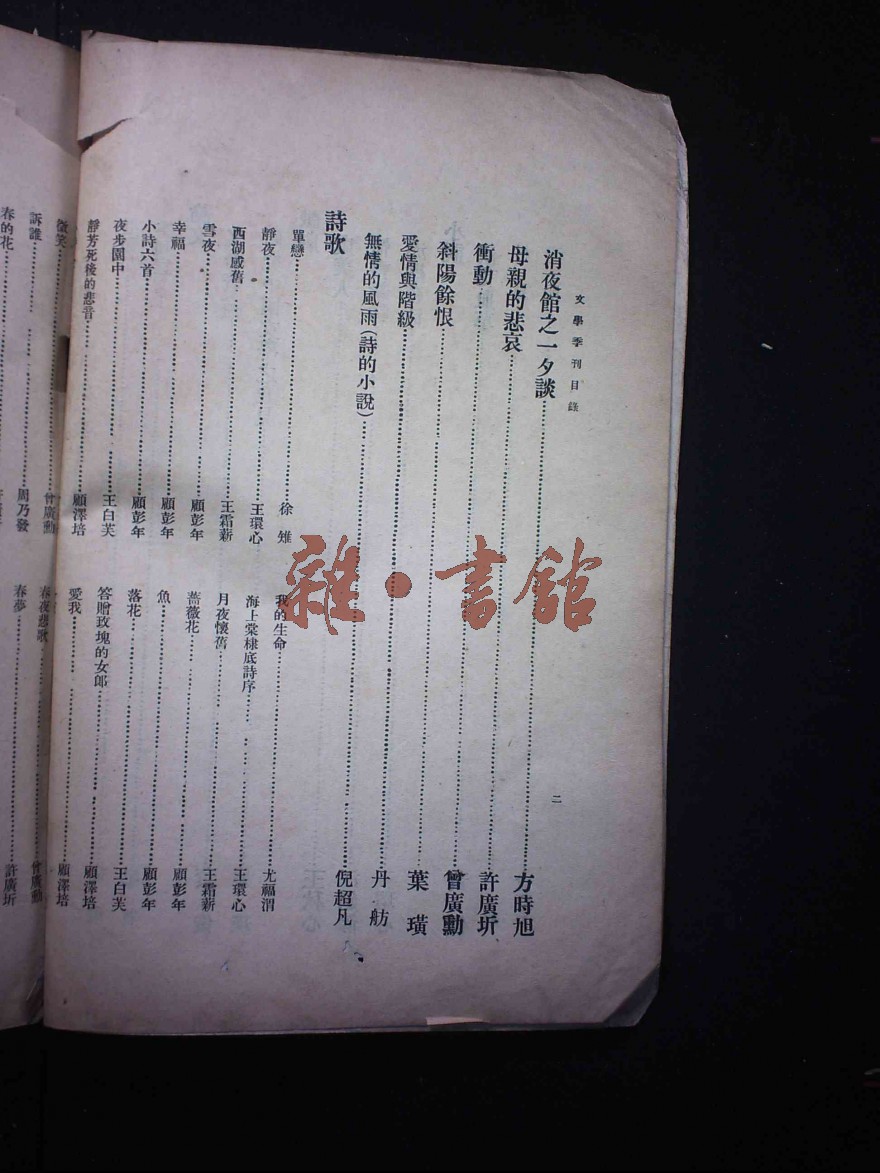 文學季刊目錄
二
消夜館之一夕談……方時旭
母親的悲哀……許廣圻
衝動……曾廣勳
斜陽餘恨……葉璜
愛情與階級……丹舫
無情的風雨(詩的小說)……倪超凡
詩歌
單戀……徐雉 我的生命……尤福渭
靜夜……王環心 海上棠棣底詩序……王環心
西湖感舊……王霜薪 月夜懷舊……王霜薪
雪夜……顧彭年 薔薇花……顧彭年
幸福……顧彭年 魚……顧彭年
小詩六首……顧彭年 落花……王白芙
夜步園中……王白芙 答贈玫瑰的女郎……顧澤培
靜芳死後的悲音……顧澤培 愛我……顧澤培
微笑……曾廣勳 春夜悲歌……曾廣勳
訴誰……周乃發 春夢……許廣圻
春的花
雜·書館